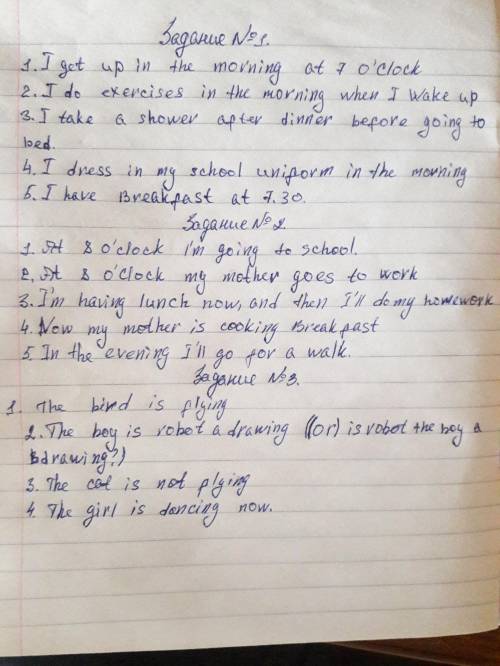 Задание №1.
1. I get up in the morning at 7 o'clock
2. I do exercises in the morning when I wake up
3. I take a shower after dinner before going to
bed.
4. I dress in my school uniform in the morning
5. I have Breakfast at 7.30.
Задание №2.
1. At 8 o'clock I'm going to school.
2. At 8 o'clock my mother goes to work
3. I'm having lunch now, and then I'll do my homework
4. Now my mother is cooking Breakfast
5. In the evening I'll go for a walk.
Задание №3.
1. The bird is flying
2. The boy is robot a drawing ((or) is robot the boy a
drawing?)
3. The cat is not flying
4. The girl is dancing now.